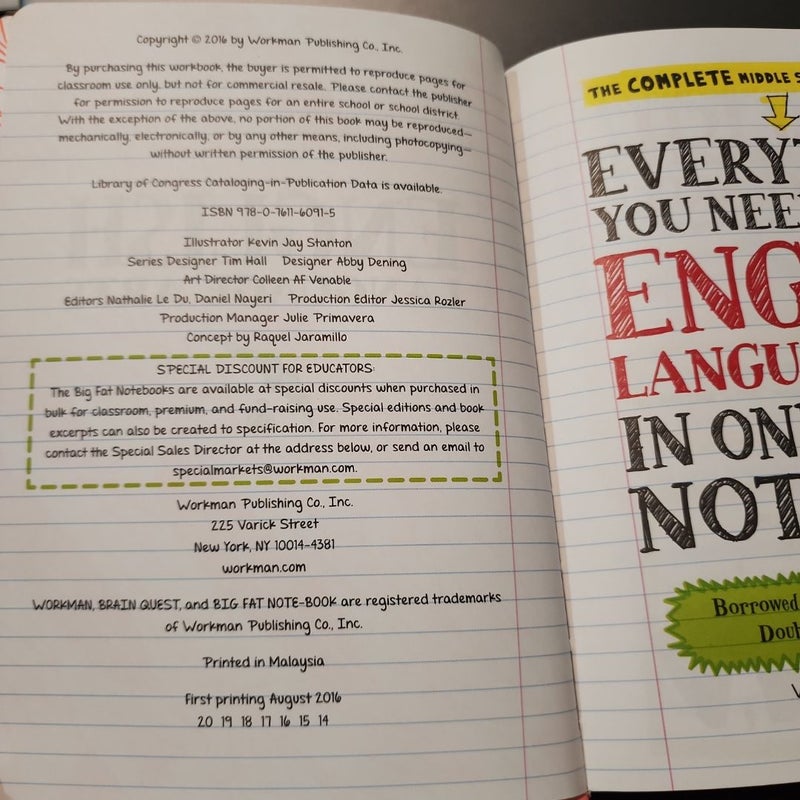 Copyright © 2016 by Workman Publishing Co., Inc.
By purchasing this workbook, the buyer is permitted to reproduce pages for
classroom use only, but not for commercial resale. Please contact the publisher
for permission to reproduce pages for an entire school or school district.
With the exception of the above, no portion of this book may be reproduced—
mechanically, electronically, or by any other means, including photocopying—
without written permission of the publisher.
Library of Congress Cataloging-in-Publication Data is available.
ISBN 978-0-7611-6091-5
Illustrator Kevin Jay Stanton
Series Designer Tim Hall Designer Abby Dening
Art Director Colleen AF Venable
Editors Nathalie Le Du, Daniel Nayeri Production Editor Jessica Rozler
Production Manager Julie Primavera
Concept by Raquel Jaramillo
SPECIAL DISCOUNT FOR EDUCATORS:
The Big Fat Notebooks are available at special discounts when purchased in
bulk for classroom, premium, and fund-raising use. Special editions and book
excerpts can also be created to specification. For more information, please
contact the Special Sales Director at the address below, or send an email to
specialmarkets@workman.com.
Workman Publishing Co., Inc.
225 Varick Street
New York, NY 10014-4381
workman.com
WORKMAN, BRAIN QUEST, and BIG FAT NOTE-BOOK are registered trademarks
of Workman Publishing Co., Inc.
Printed in Malaysia
First printing August 2016
20 19 18 17 16 15 14
THE COMPLETE MIDDLE S
EVERYT
YOU NEE
ENG
LANGU
IN ON
NOT
Borrowed
Doub